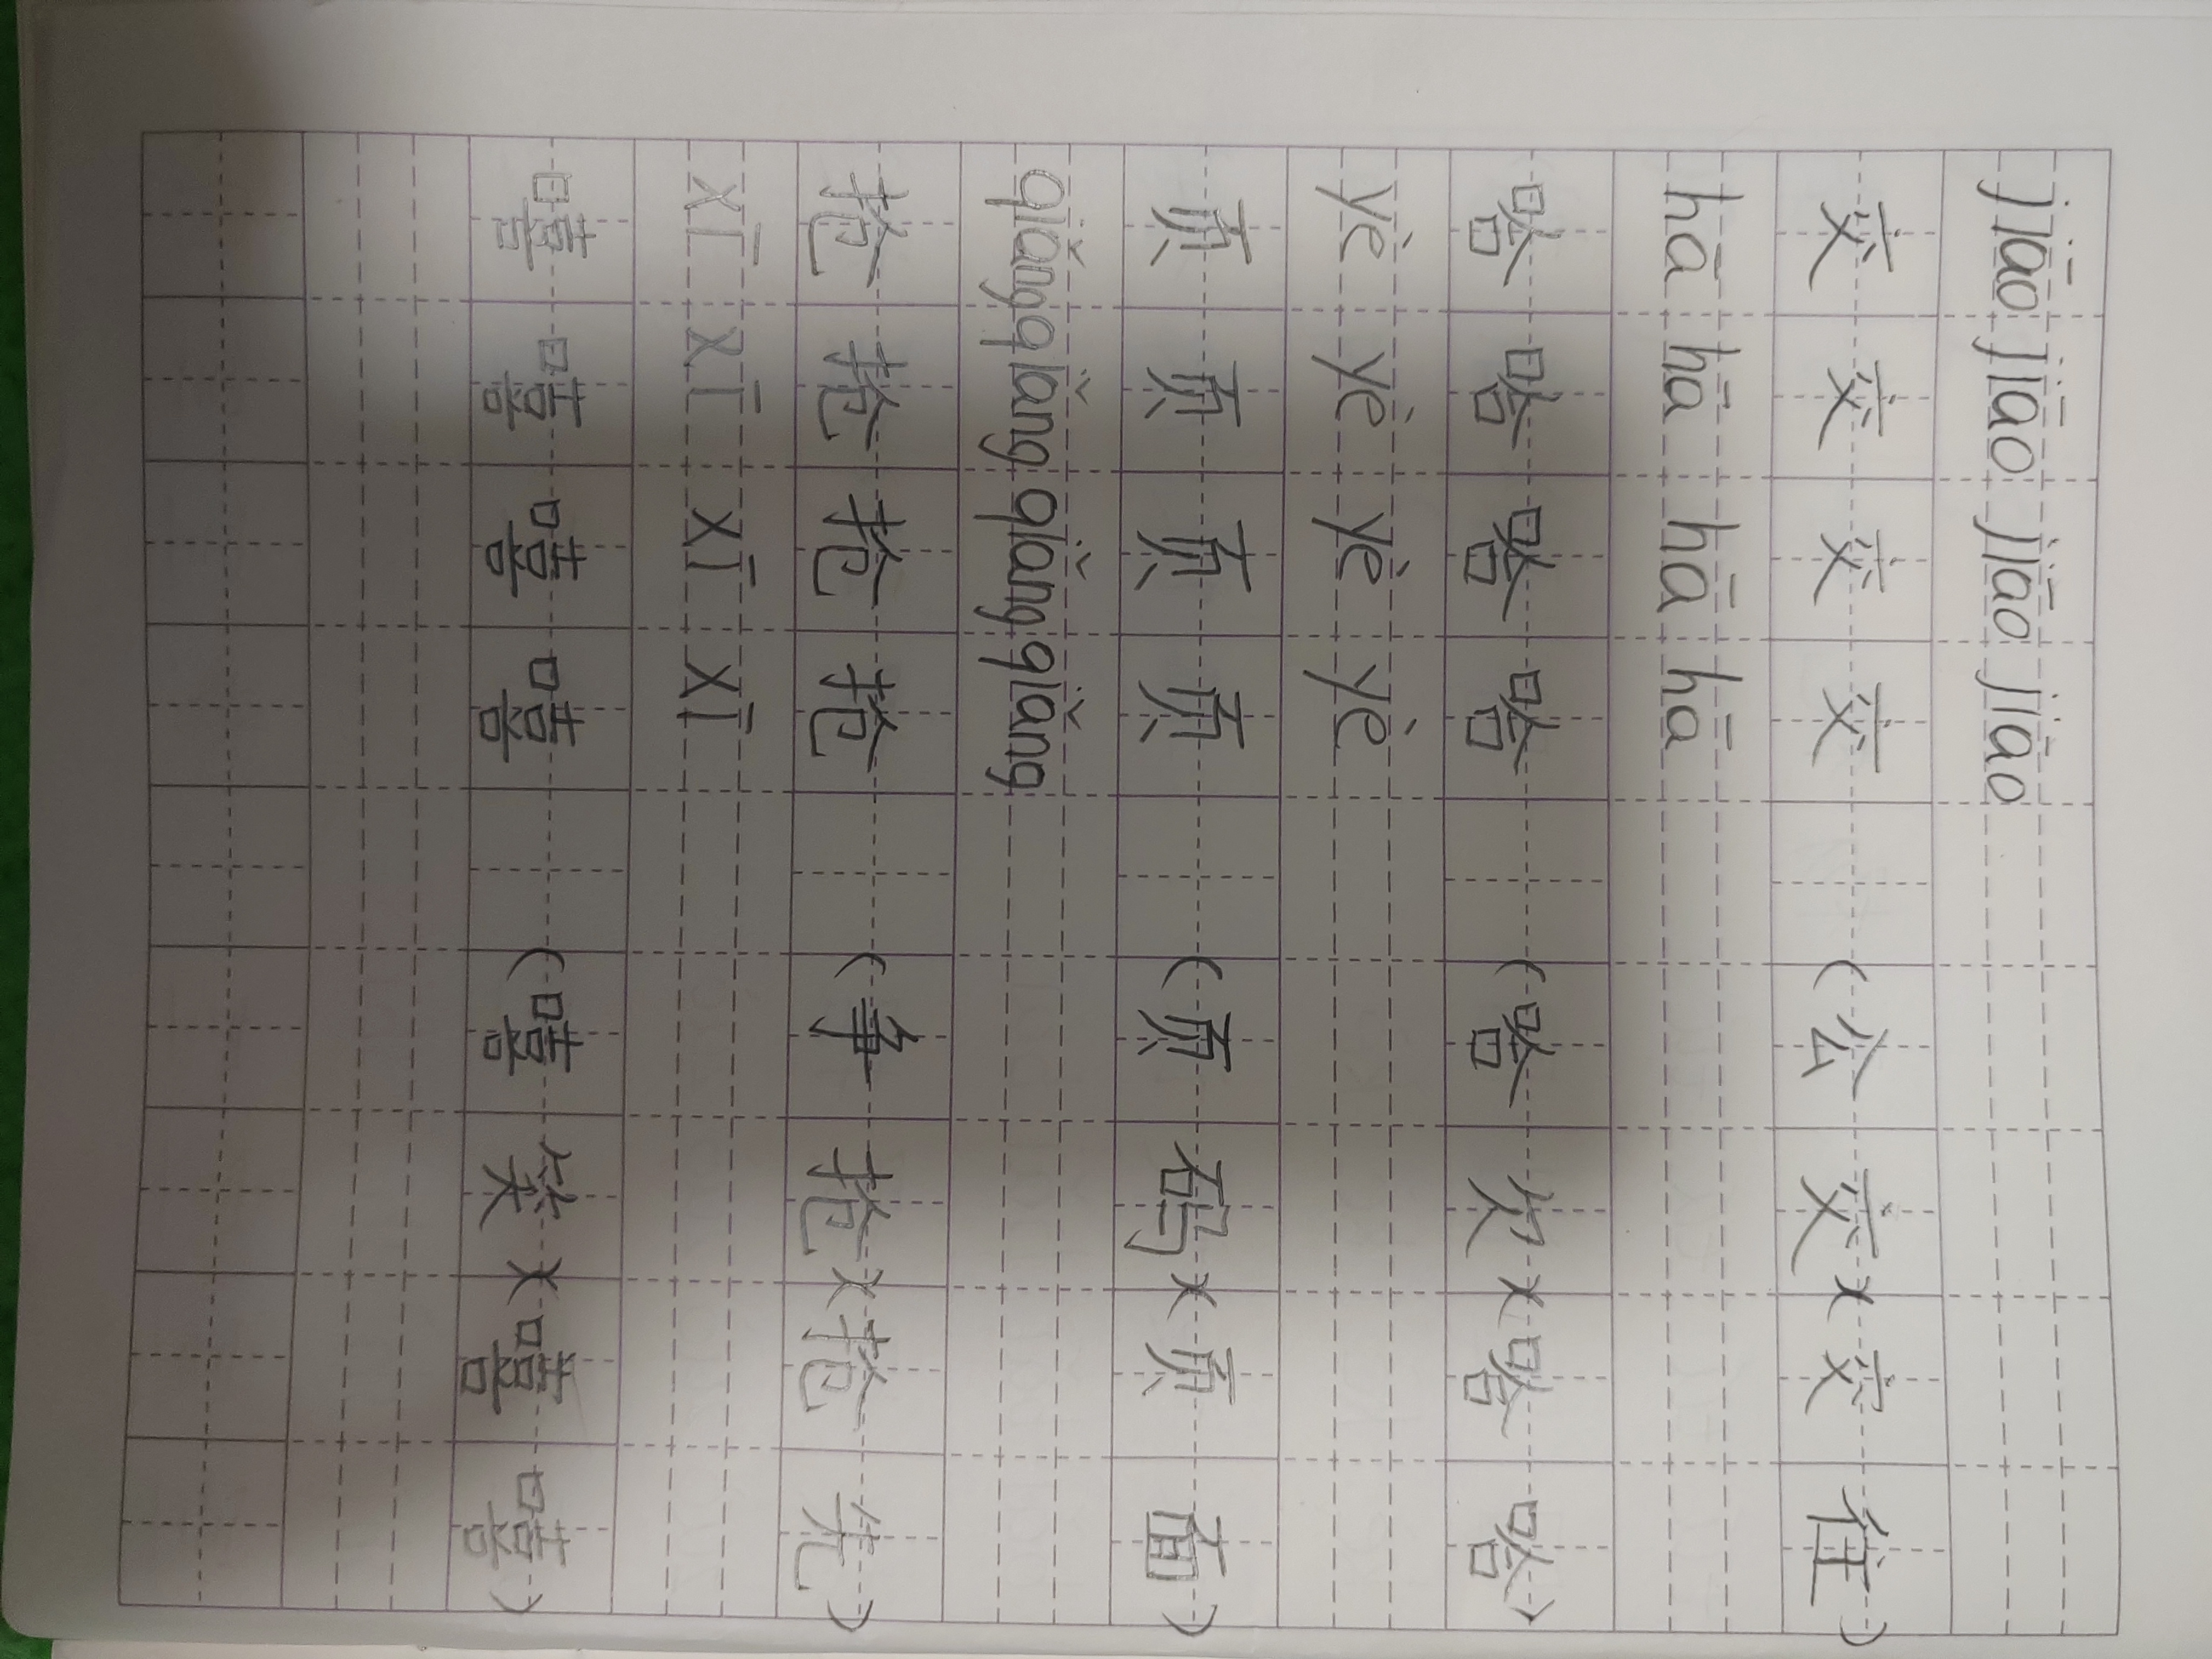 jiāo jiāo jiāo jiāo
交 交 交 交 (公交)(交往)
hā hā hā hā
哈 哈 哈 哈 (哈欠)(哈哈)
yè yè yè yè
页 页 页 页 (页码)(页面)
qiǎng qiǎng qiǎng qiǎng
抢 抢 抢 抢 (争抢)(抢先)
xī xī xī xī
嘻 嘻 嘻 嘻 (嘻笑)(嘻嘻)